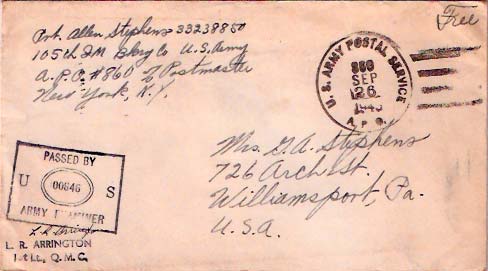 Pvt. Allen Stephens 33238850
105th QM Bkry Co U.S. Army
A.P.O. #860 % Postmaster
New York, N.Y.
Free
U.S. ARMY POSTAL SERVICE
860
SEP
26
1943
A.P.O.
Mrs. G.A. Stephens
726 Arch St.
Williamsport, Pa.
U.S.A.
PASSED BY
U 00646 S
ARMY EXAMINER
L. R. Arrington
L. R. ARRINGTON
1st Lt., Q.M.C.